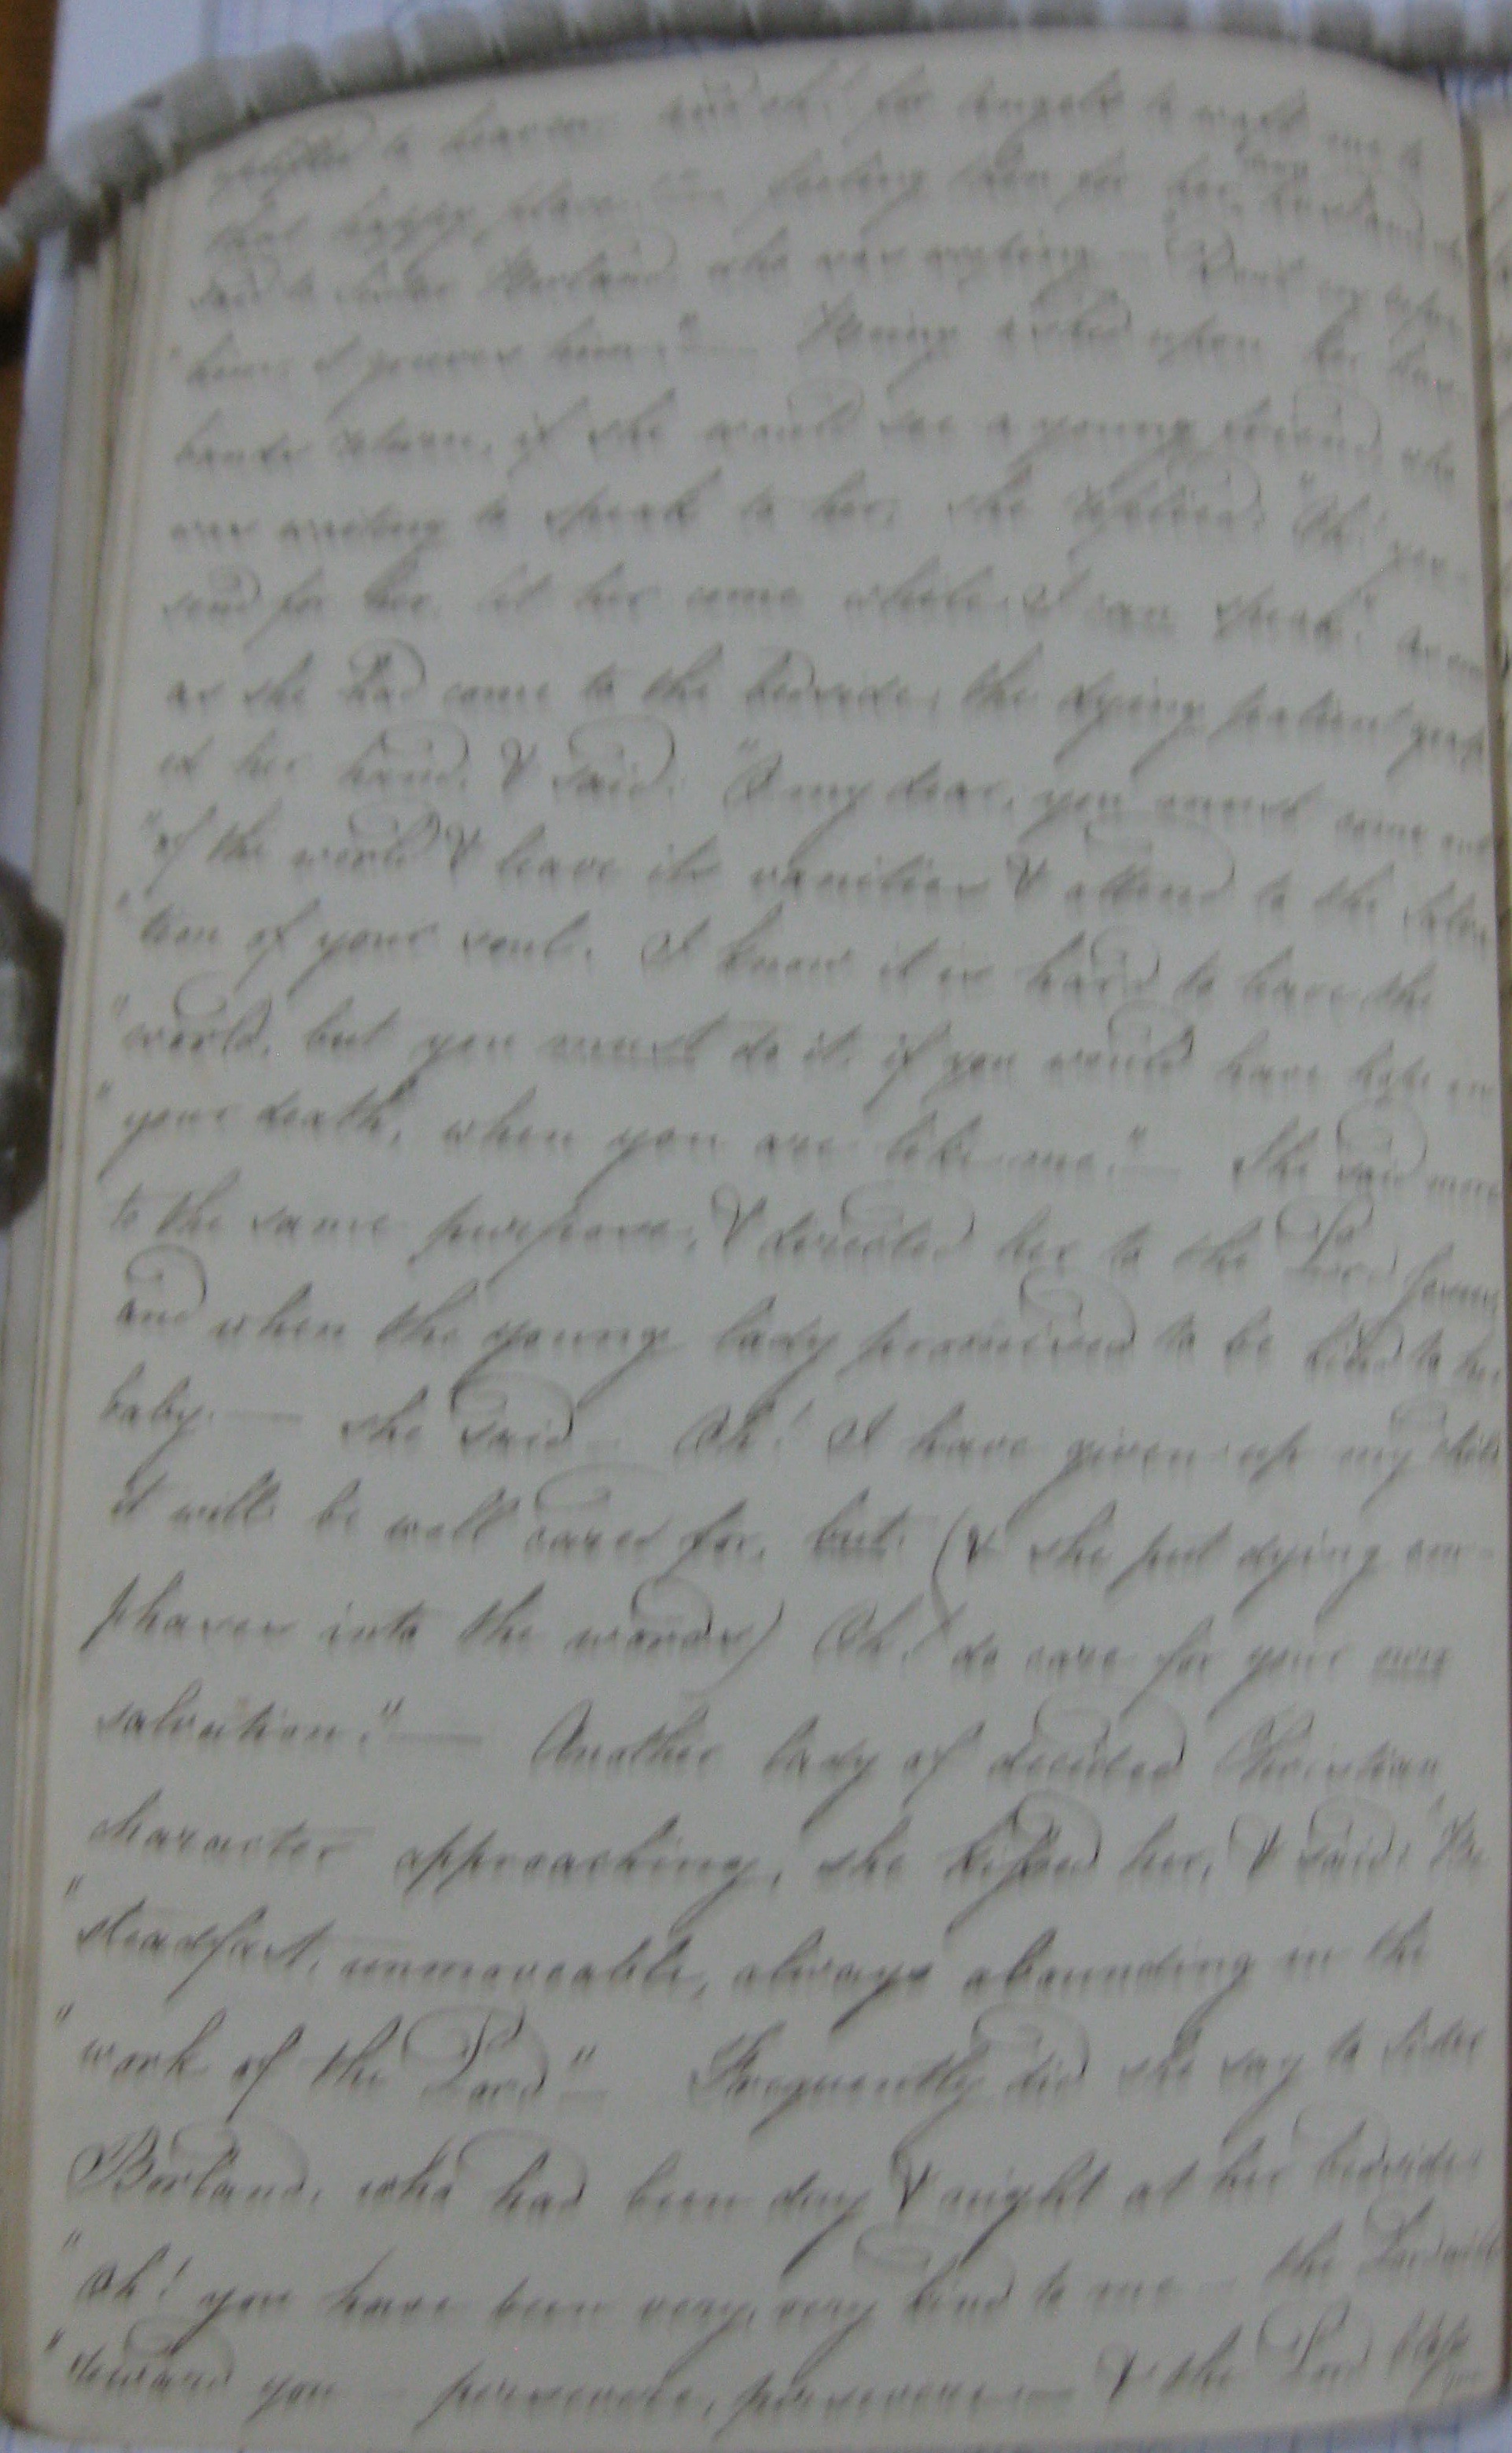 to heaven and oh! for Angels to waft me to
that happy place. feeling then for her husband
said to Borland, who was weeping
him, it grieves him." — Being asked upon her hus
bands return, if she would see a young friend, who
was waiting to speak to her, she replied. "Oh! yes.
send for her, let her come while I can speak".
as she had come to the bedside, the dying patient grasp
ed her hand, & said. "O my dear, you must come out
"of the world & leave its vanities & attend to the salva
"tion of your soul. I know it is hard to leave the
"world, but you must do it, if you would have hope in
"your death, when you are like me." — She said more
to the same purpose, & directed her to the Lord Jesus,
and when the young lady promised to be kind to her
baby. — she said — Oh! I have given up my child
it will be well cared for, but (& she put dying em-
phases into the words) Oh! do care for your own
salvation." — Another lady of decided Christian
character approaching, she kissed her, & said, "Be
"steadfast, unmoveable, always abounding in the
"work of the Lord" — Frequently did she say to Sister
Borland, who had been day & night at her bedside
"Oh! you have been very, very kind to me — the Lord will
"reward you — persevere, persevere — & the Lord bless you